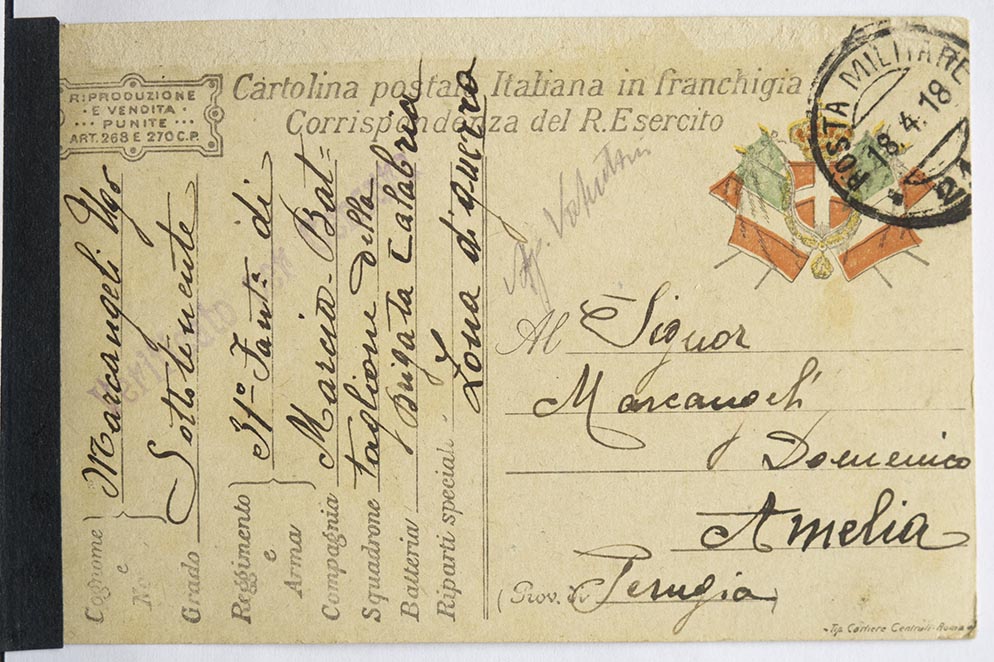 RIPRODUZIONE
E VENDITA
PUNITE
ART. 268 E 270 C.P.
Cartolina postale Italiana in franchigia
Corrispondenza del R. Esercito
POSTA MILITARE
18.4.18
Cognome e Marcangeli Ugo
Grado Sottotenente
Reggimento e Arma 31º Fantª di
Compagnia Marcia - Bat=
Squadrone taglione della
Batteria Brigata Calabria
Riparti speciali Zona di guerra
Verificato per censura
Al Signor
Marcangeli
Domenico
Amelia
(Prov. di Perugia)
Tip. Cartiere Centrali - Roma